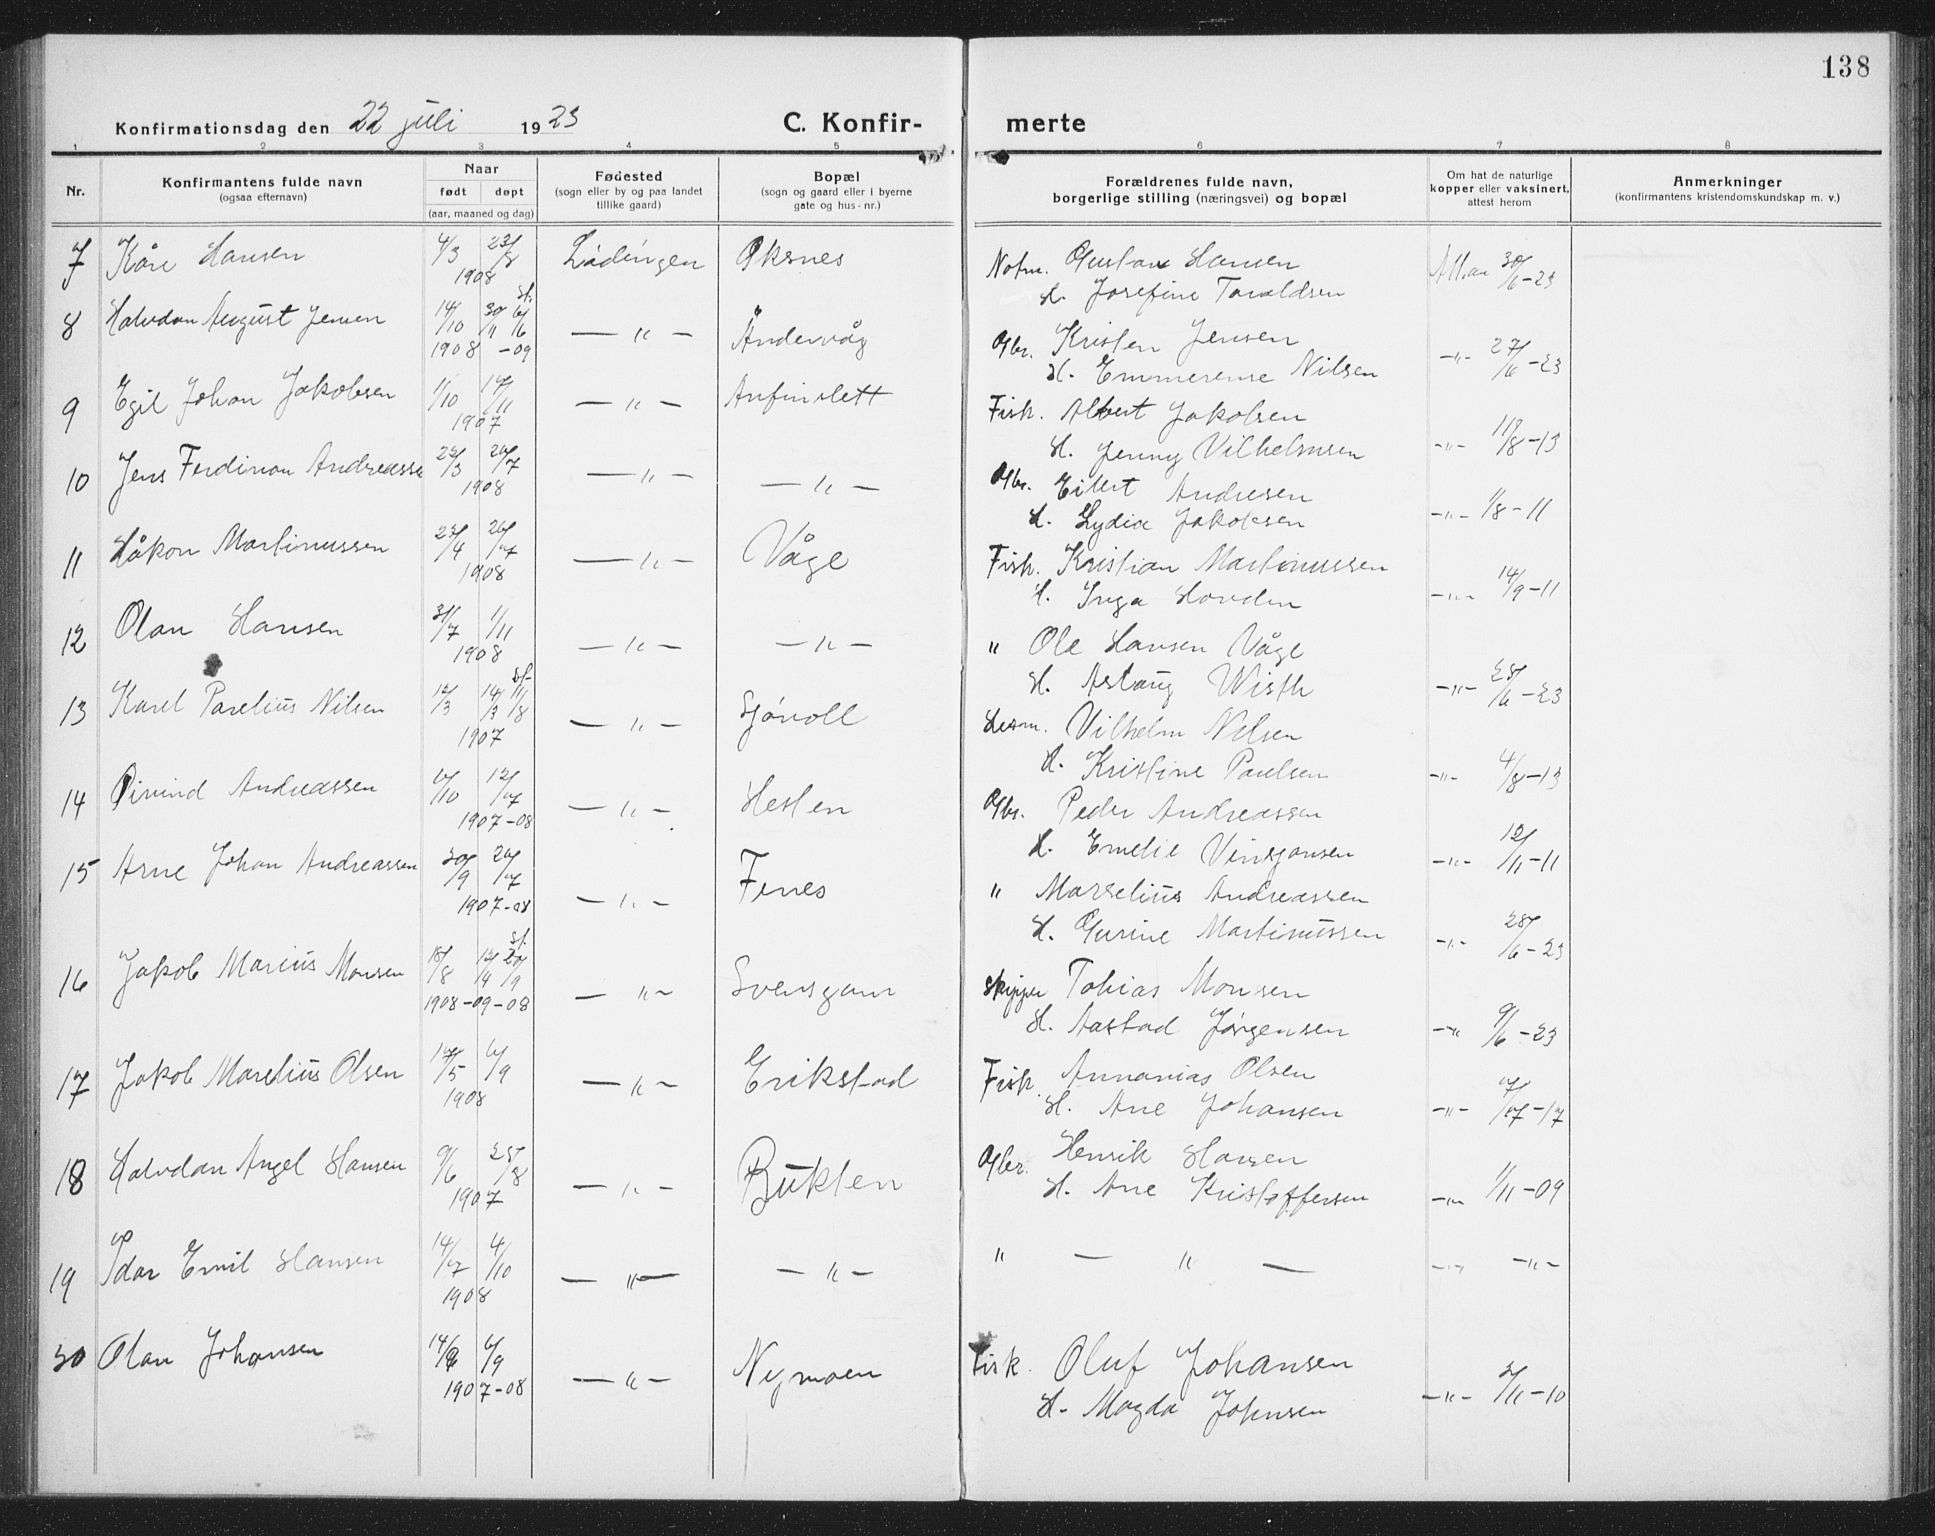 138
Konfirmationsdag den 22 juli 1923
C. Konfir- merte
1 2 3 4 5 6 7 8
Nr.
Konfirmantens fulde navn
(ogsaa efternavn)
Naar
født døpt
(aar, maaned og dag)
Fødested
(sogn eller by og paa landet
tillike gaard)
Bopæl
(sogn og gaard eller i byerne
gate og hus-nr.)
Forældrenes fulde navn,
borgerlige stilling (næringsvei) og bopæl
Om hat de naturlige
kopper eller vaksinert,
attest herom
Anmerkninger
(konfirmantens kristendomskundskap m. v.)
7 Kåre Hansen 4/3 23/8 1908 Lødingen Oksnes Gustav Hansen Att. av 30/6-23
H. Josefine Toraldsen
8 Halvdan August Jensen 14/10 30/11 st. 6/6 1908 -09 —"— Åndervåg Gbr. Kristen Jensen —"— 27/6-23
H. Emmerense Nilsen
9 Egil Johan Jakobsen 1/10 17/11 1907 —"— Anfinslett Fisk. Albert Jakobsen
H. Jenny Vilhelmsen —"— 11/8-13
10 Jens Ferdinan Andreasse 22/3 26/7 1908 —"— —"— Gbr. Eilert Andresen
H. Lydia Jakobsen —"— 1/8-11
11 Håkon Martinussen 23/4 26/7 1908 —"— Våge Fisk. Kristian Martinussen
H. Inga Hovden —"— 14/9-11
12 Olav Hansen 31/7 1/11 1908 —"— —"— " Ole Hansen Våge
H. Aslaug Wisth —"— 25/6-23
13 Karel Parelius Nilsen 12/3 14/3 st. 11/8 1907 —"— Sjøvoll Vilhelm Nilsen
H. Kristine Paulsen —"— 4/8-13
14 Øivind Andreassen 6/10 12/7 1907-08 —"— Hesten Gbr. Peder Andreassen
H. Emelie Vinsjansen —"— 12/11-11
15 Arne Johan Andreassen 30/9 26/7 1907-08 —"— Fenes " Marselius Andreassen
H. Gurine Martinussen —"— 28/6-23
16 Jakob Marius Monsen 18/8 12/4 st. 20/9 1908-09-08 —"— Svensgam Skipper Tobias Monsen
H. Aastad Jørgensen —"— 9/6-23
17 Jakob Marelius Olsen 17/5 6/9 1908 —"— Erikstad Fisk. Annanias Olsen
H. Ane Johansen —"— 7/7-17
18 Halvdan Angel Hansen 9/6 25/8 1907 —"— Bukten Gbr. Henrik Hansen
H. Ane Kristoffersen —"— 1/11-09
19 Idar Emil Hansen 14/7 4/10 1908 —"— —"— " —"— —"— —"—
20 Olav Johansen 14/9 6/9 1907-08 —"— Nymoen Fisk. Oluf Johansen
H. Magda Johnsen —"— 2/11-10